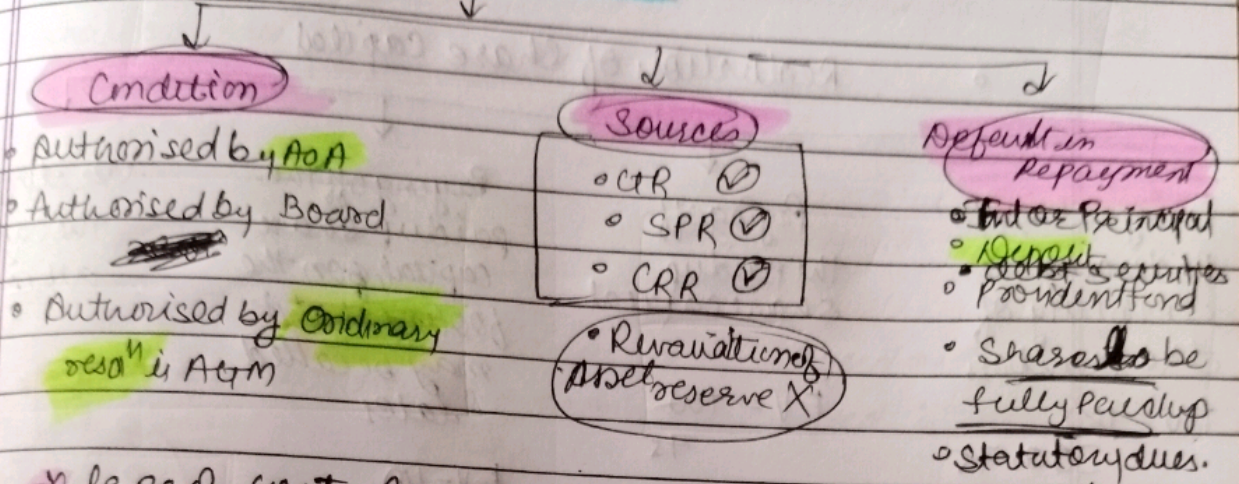 Condition
• Authorised by AOA
• Authorised by Board
• Authorised by Ordinary
resoⁿ in AGM
Sources
• GR
• SPR
• CRR
• Revaluation of
Asset reserve X
Default in
Repayment
• Int or Principal
• Deposit
• Debt securities
• Provident fund
• Shares to be
fully Paidup
• Statutory dues.